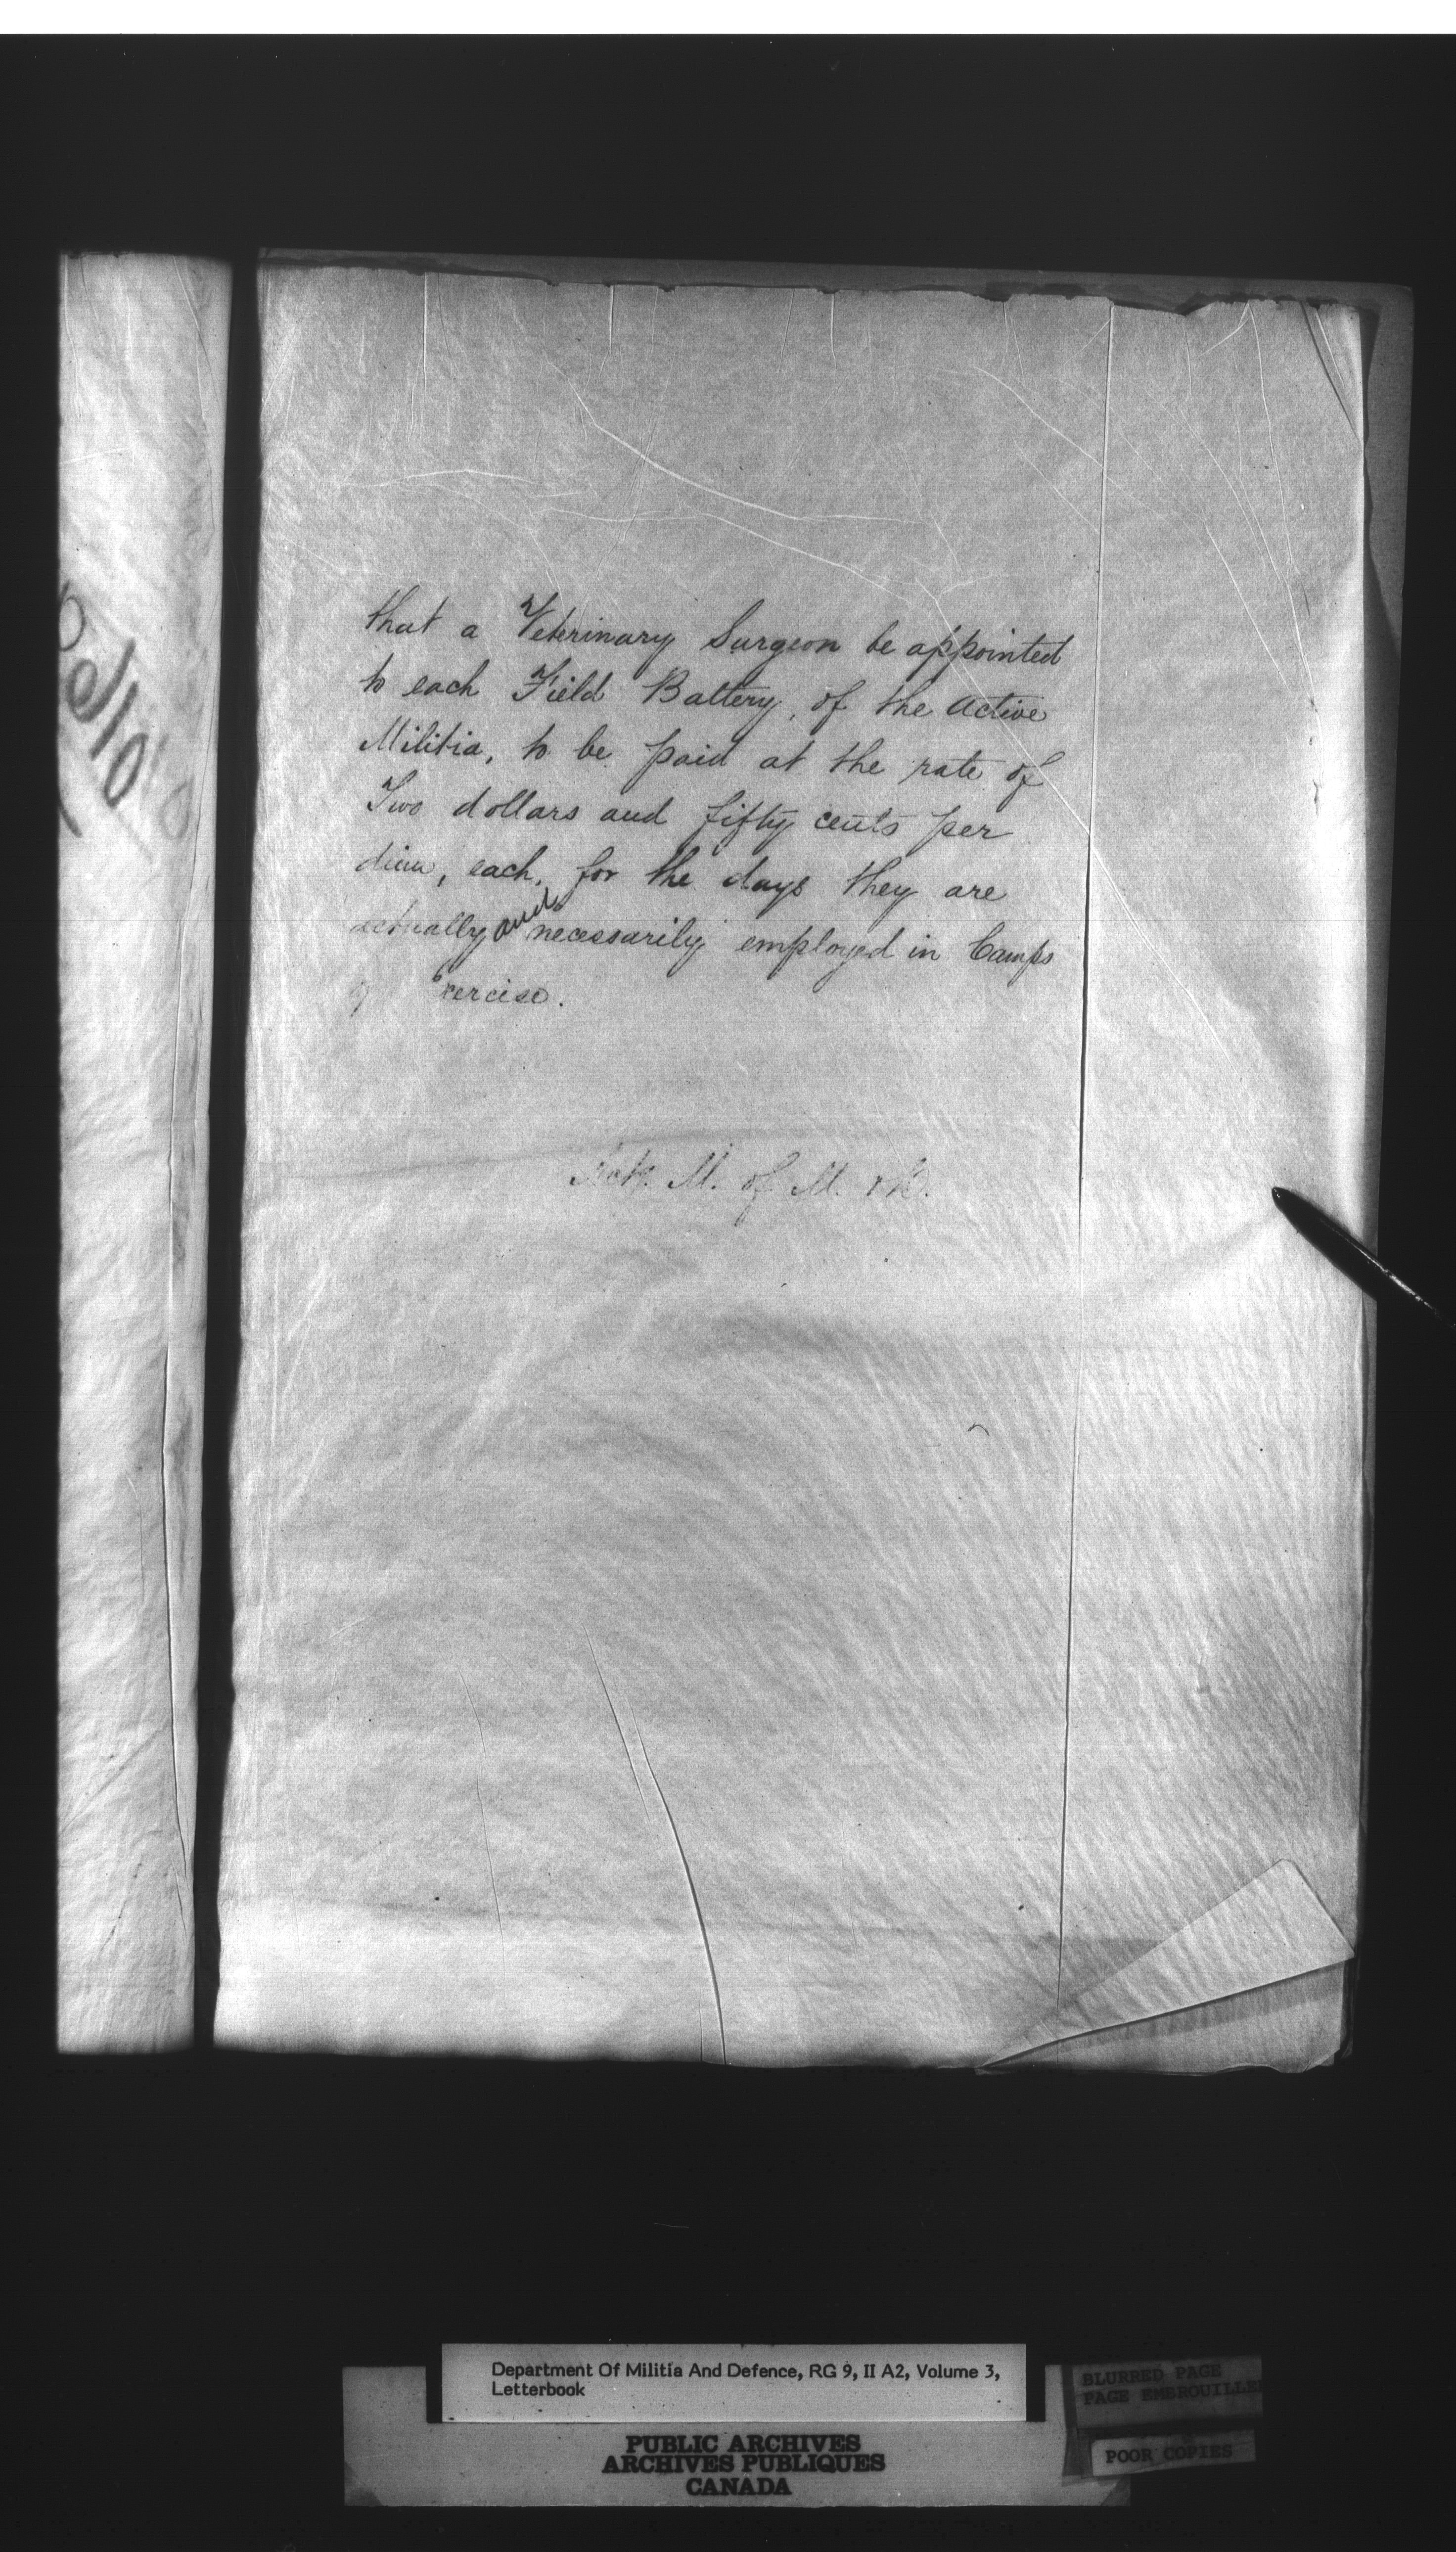 that a Veterinary Surgeon be appointed
to each Field Battery, of the Active
Militia, to be paid at the rate of
Two dollars and fifty cents per
diem, each, for the days they are
actually and necessarily employed in Camps
of Exercise.
M. of M. & D.
Department Of Militia And Defence, RG 9, II A2, Volume 3,
Letterbook
PUBLIC ARCHIVES
ARCHIVES PUBLIQUES
CANADA
BLURRED PAGE
PAGE EMBROUILLEE
POOR COPIES